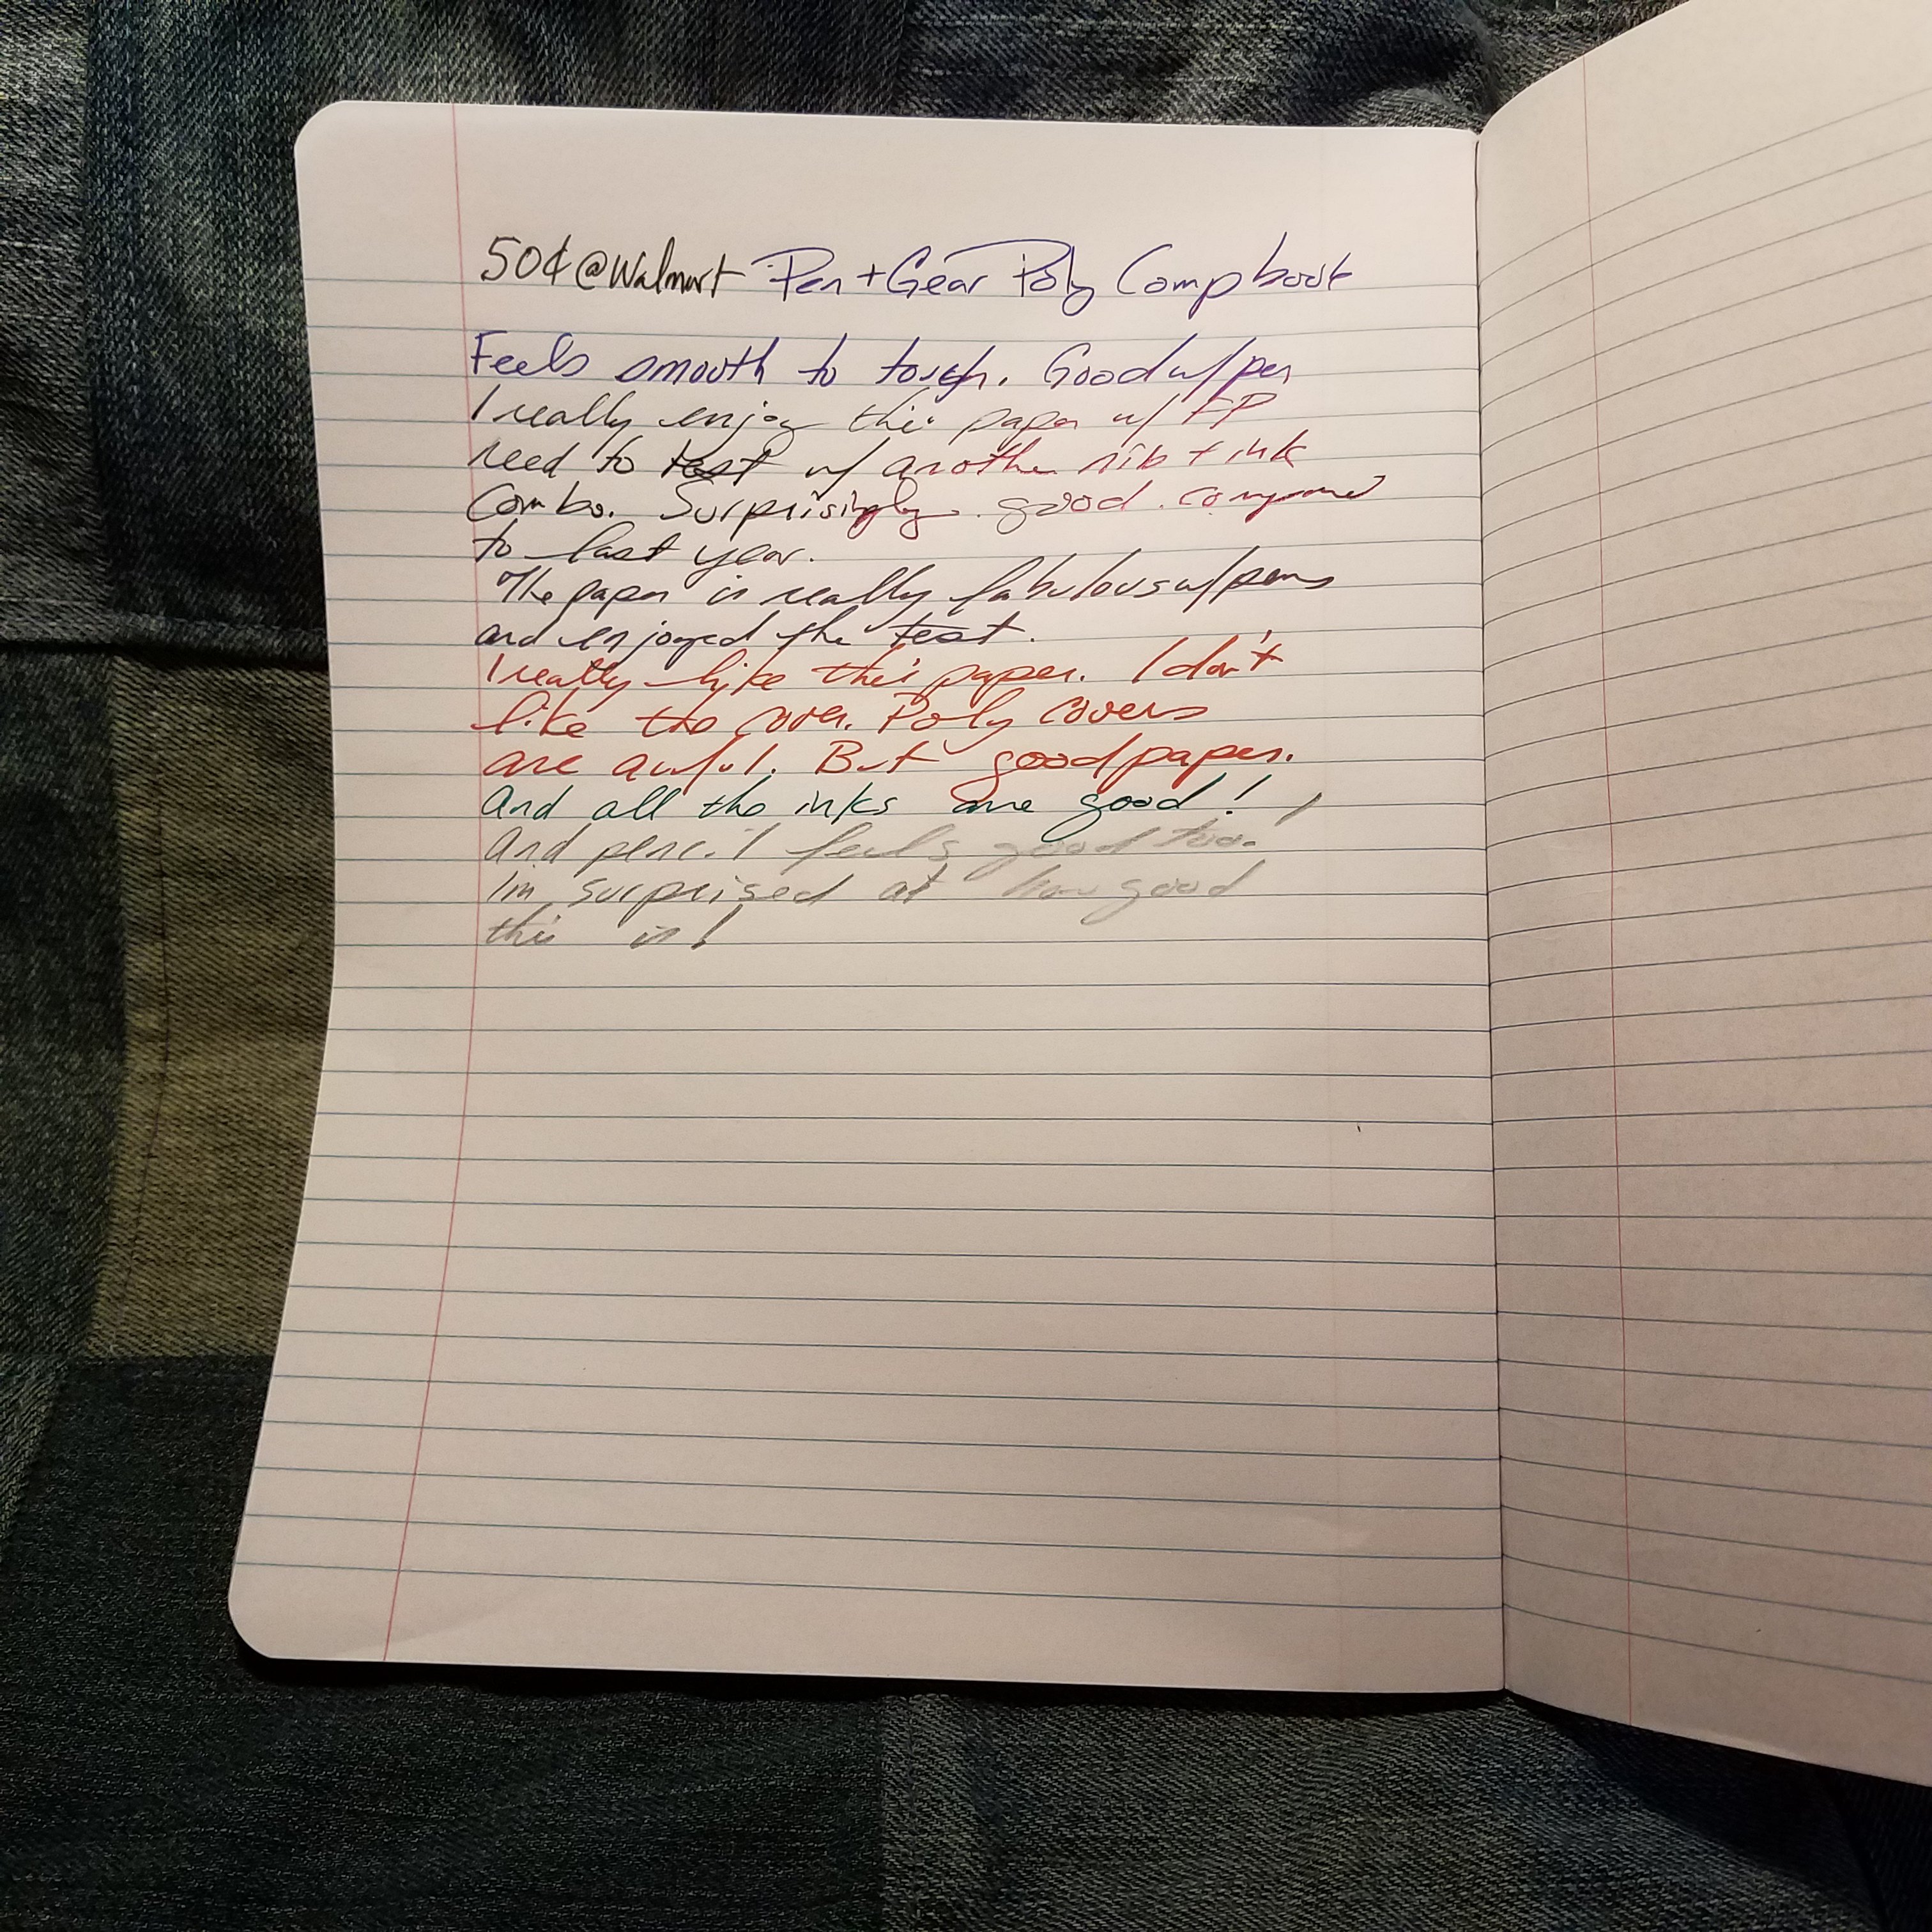 50¢@Walmart Pen+Gear Poly Compbook
Feels smooth to touch. Good w/pen
I really enjoy this paper w/ FP
Need to test w/ another nib + ink
Combo. Surprisingly good compared
to last year.
The paper is really fabulous w/pens
and enjoyed the test.
I really like this paper. I don't
like the cover. Poly covers
are awful. But good paper.
And all the inks are good!
And pencil feels good too!
Im surprised at how good
this is!